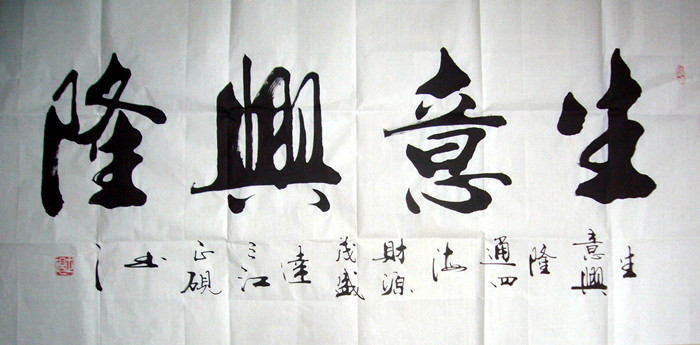 生意興隆
生
意興
隆
通四
海
財源
茂盛
達
三江
正硯
书